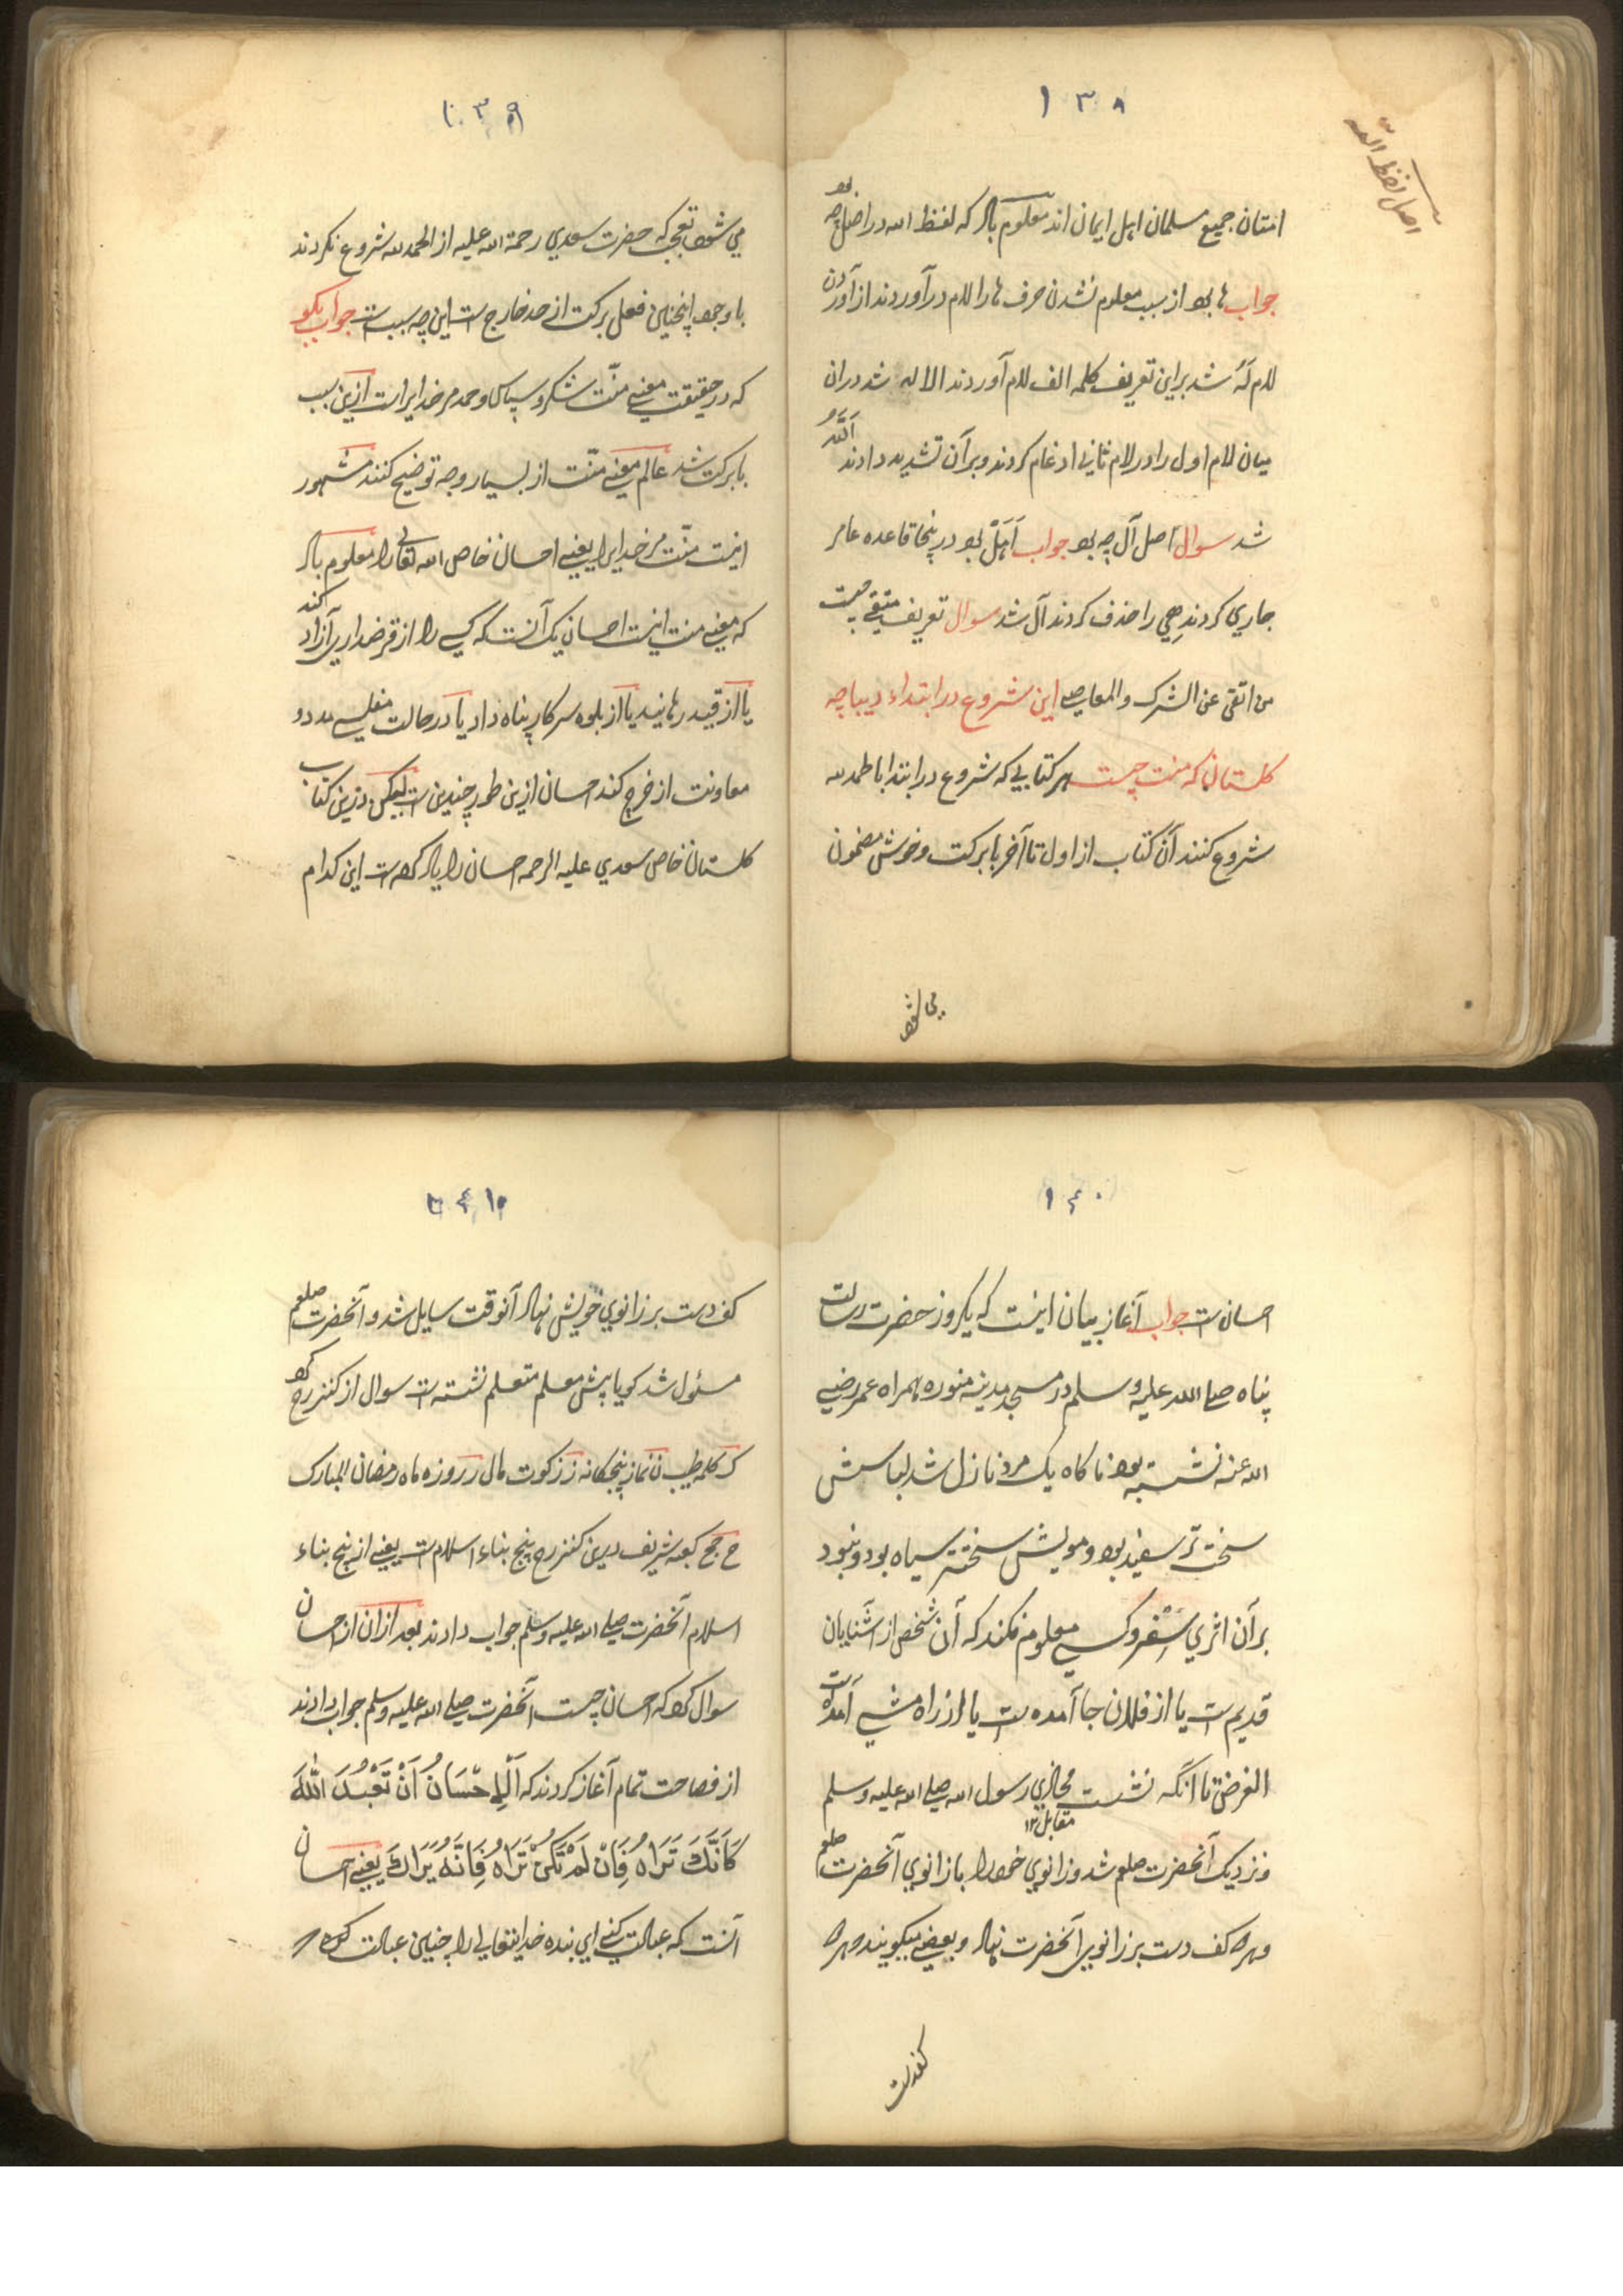 ۱۳۸
اصل لفظ الله
امتنان جمیع مسلمان اہل ایمان اند معلوم باد که لفظ الله در اصل چه بود
جواب ها بود از سبب معلوم نشدن حرف ها را لام در آوردند از آوردن
لام لَهُ شد برای تعریف کلمه الف لام آوردند الاله شد در ان
میان لام اول را در لام ثانی ادغام کردند و بر آن تشدید دادند اَللّٰهُ
شد سوال اصل آل چه بود جواب اَہَلْ بود درینجا قاعده عامر
جاري کردند هي را حذف کردند آل شد سوال تعریف متقي چیست
من اتقی عن الشرک والمعاصي این شروع در ابتداء دیباچه
کلستان که منت چیست ہر کتابي که شروع در ابتدا با الحمد لله
شروع کنند آن کتاب از اول تا آخر با برکت و خوش مضمون
می شود
۱۳۹
مي شود تعجب که حضرت سعدي رحمة الله علیه از الحمد لله شروع نکردند
باوجود اینچنین فعلی برکت از حد خارج است این چه سبب است جواب بکو
که در حقیقت معني منّت شکر و سپاس و حمد مر خدایرا است ازین سبب
با برکت شد عالم معني منّت از بسیار وجه توضیح کنند مشہور
اینست منّت مر خدایرا یعني احسان خاص الله تعالی را معلوم باد
که معني منت اینست احسان یک آنست که کسي را از قرضداري آزاد کند
یا از قید رهانید یا از بلوه سرکار پناه داد یا در حالت مفلسي مدد و
معاونت از خرچ کند احسان ازین طور چندین است لیکن درین کتاب
کلستان خاص سعدي علیه الرحمه احسان را یاد کرده است این کدام
۱۴۰
احسان است جواب آغاز بیان اینست که یکروز حضرت رسالت
پناه صلی الله علیه وسلم در مسجد مدینه منوره ہمراه عمر رضي
الله عنه نشسته بود ناکاه یک مرد نازل شد لباسش
سخت تر سفید بود و مویش سختتر سیاه بود و نبود
بر آن اثري سَفْر و کسي معلوم نکند که آن شخص از آشنایان
قدیم است یا از فلان جا آمده است یا از راه مشي آمده است
الغرض تا آنکه نشست محاذي رسول الله صلی الله علیه وسلم
مقابل ۱۲
و نزدیک آنحضرت صلعم شد و زانوي خود را با زانوي آنحضرت صلعم
و ہر دو کف دست بر زانوي آنحضرت نہاد و بعضي میکویند ہر دو
کف دست
۱۴۱
کف دست بر زانوي خویش نہاد آنوقت سایل شد و آنحضرت صلعم
مسئول شد کویا پیش معلم متعلم نشسته است سوال از کنزرح کرد
ک کلمه طیب ن نماز پنجکانه ز زکوت مال ر روزه ماه رمضان المبارک
ح حج کعبه شریف درین کنزرح پنج بناء اسلام است یعني از پنج بناء
اسلام آنحضرت صلی الله علیه وسلم جواب دادند بعد ازان از احسان
سوال کرد که احسان چیست آنحضرت صلی الله علیه وسلم جواب دادند
از فصاحت تمام آغاز کردند که اَلْاِحْسَانُ اَنْ تَعْبُدَ اللّٰهَ
کَاَنَّكَ تَرَاهُ فَاِنْ لَمْ تَکُنْ تَرَاهُ فَاِنَّهُ یَرَاكَ یعني احسان
آنست که عبادت کني اي بنده خدایتعالی را چنین عبادت که